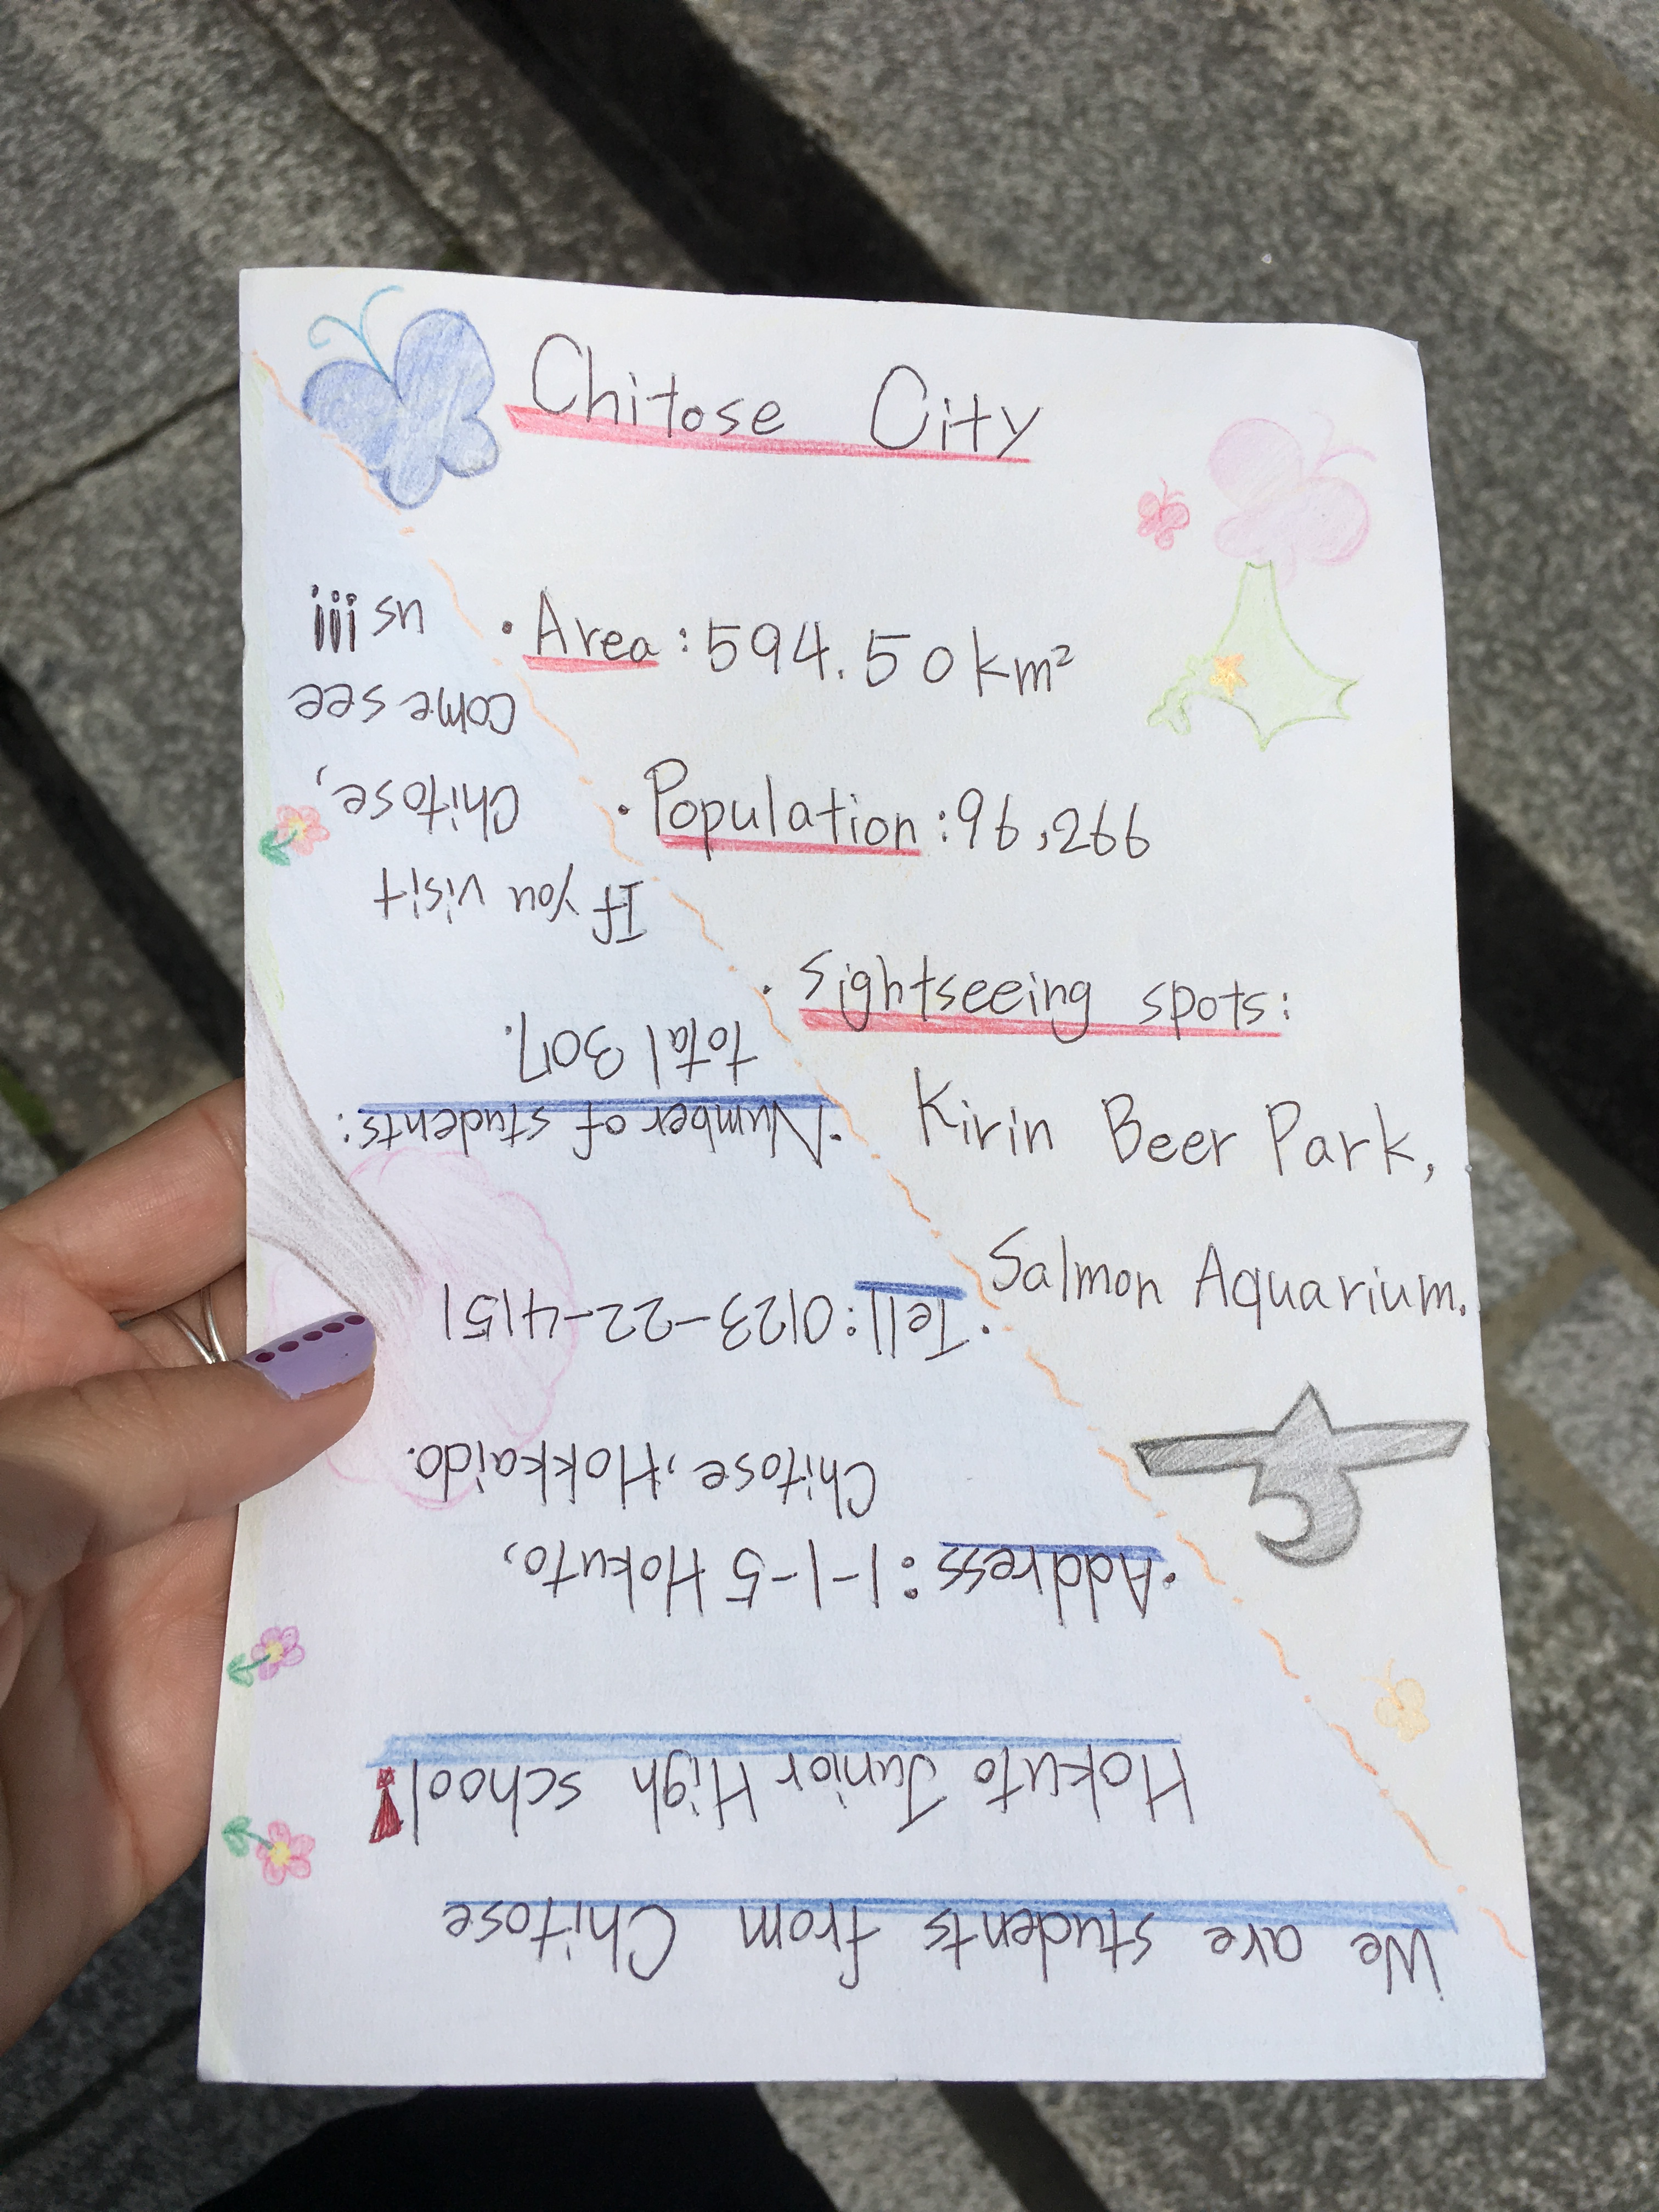 Chitose City
・Area:594.50km²
・Population:96,266
・Sightseeing spots:
Kirin Beer Park,
Salmon Aquarium.
We are students from Chitose
Hokuto Junior High school
・Address:1-1-5 Hokuto,
Chitose, Hokkaido.
・Tell:0123-22-4151
・Number of students:
total 307.
If you visit
Chitose,
come see
us !!!